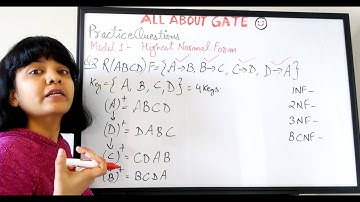 ALL ABOUT GATE
Practice Questions
Model 1:- Highest Normal Form
2 R(ABCD) F={A→B, B→C, C→D, D→A}
Key={A, B, C, D} = 4 keys
(A)+ = ABCD
(D)+ = DABC
(C)+ = CDAB
(B)+ = BCDA
1NF-
2NF-
3NF-
BCNF-